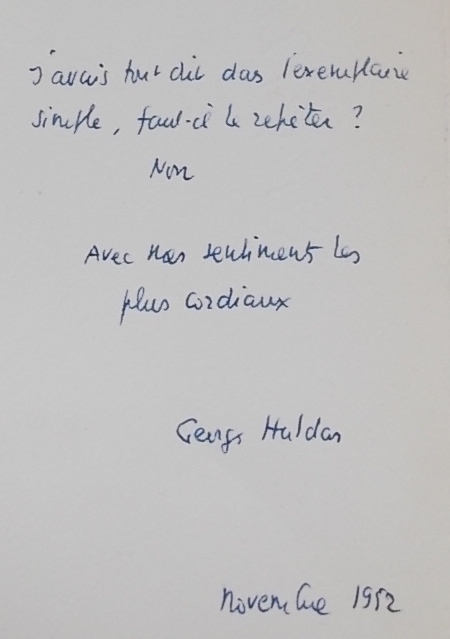 J'avais tout dit dans l'exemplaire
simple, faut-il le répéter ?
Non
Avec mes sentiments les
plus cordiaux
Georges Haldas
Novembre 1952